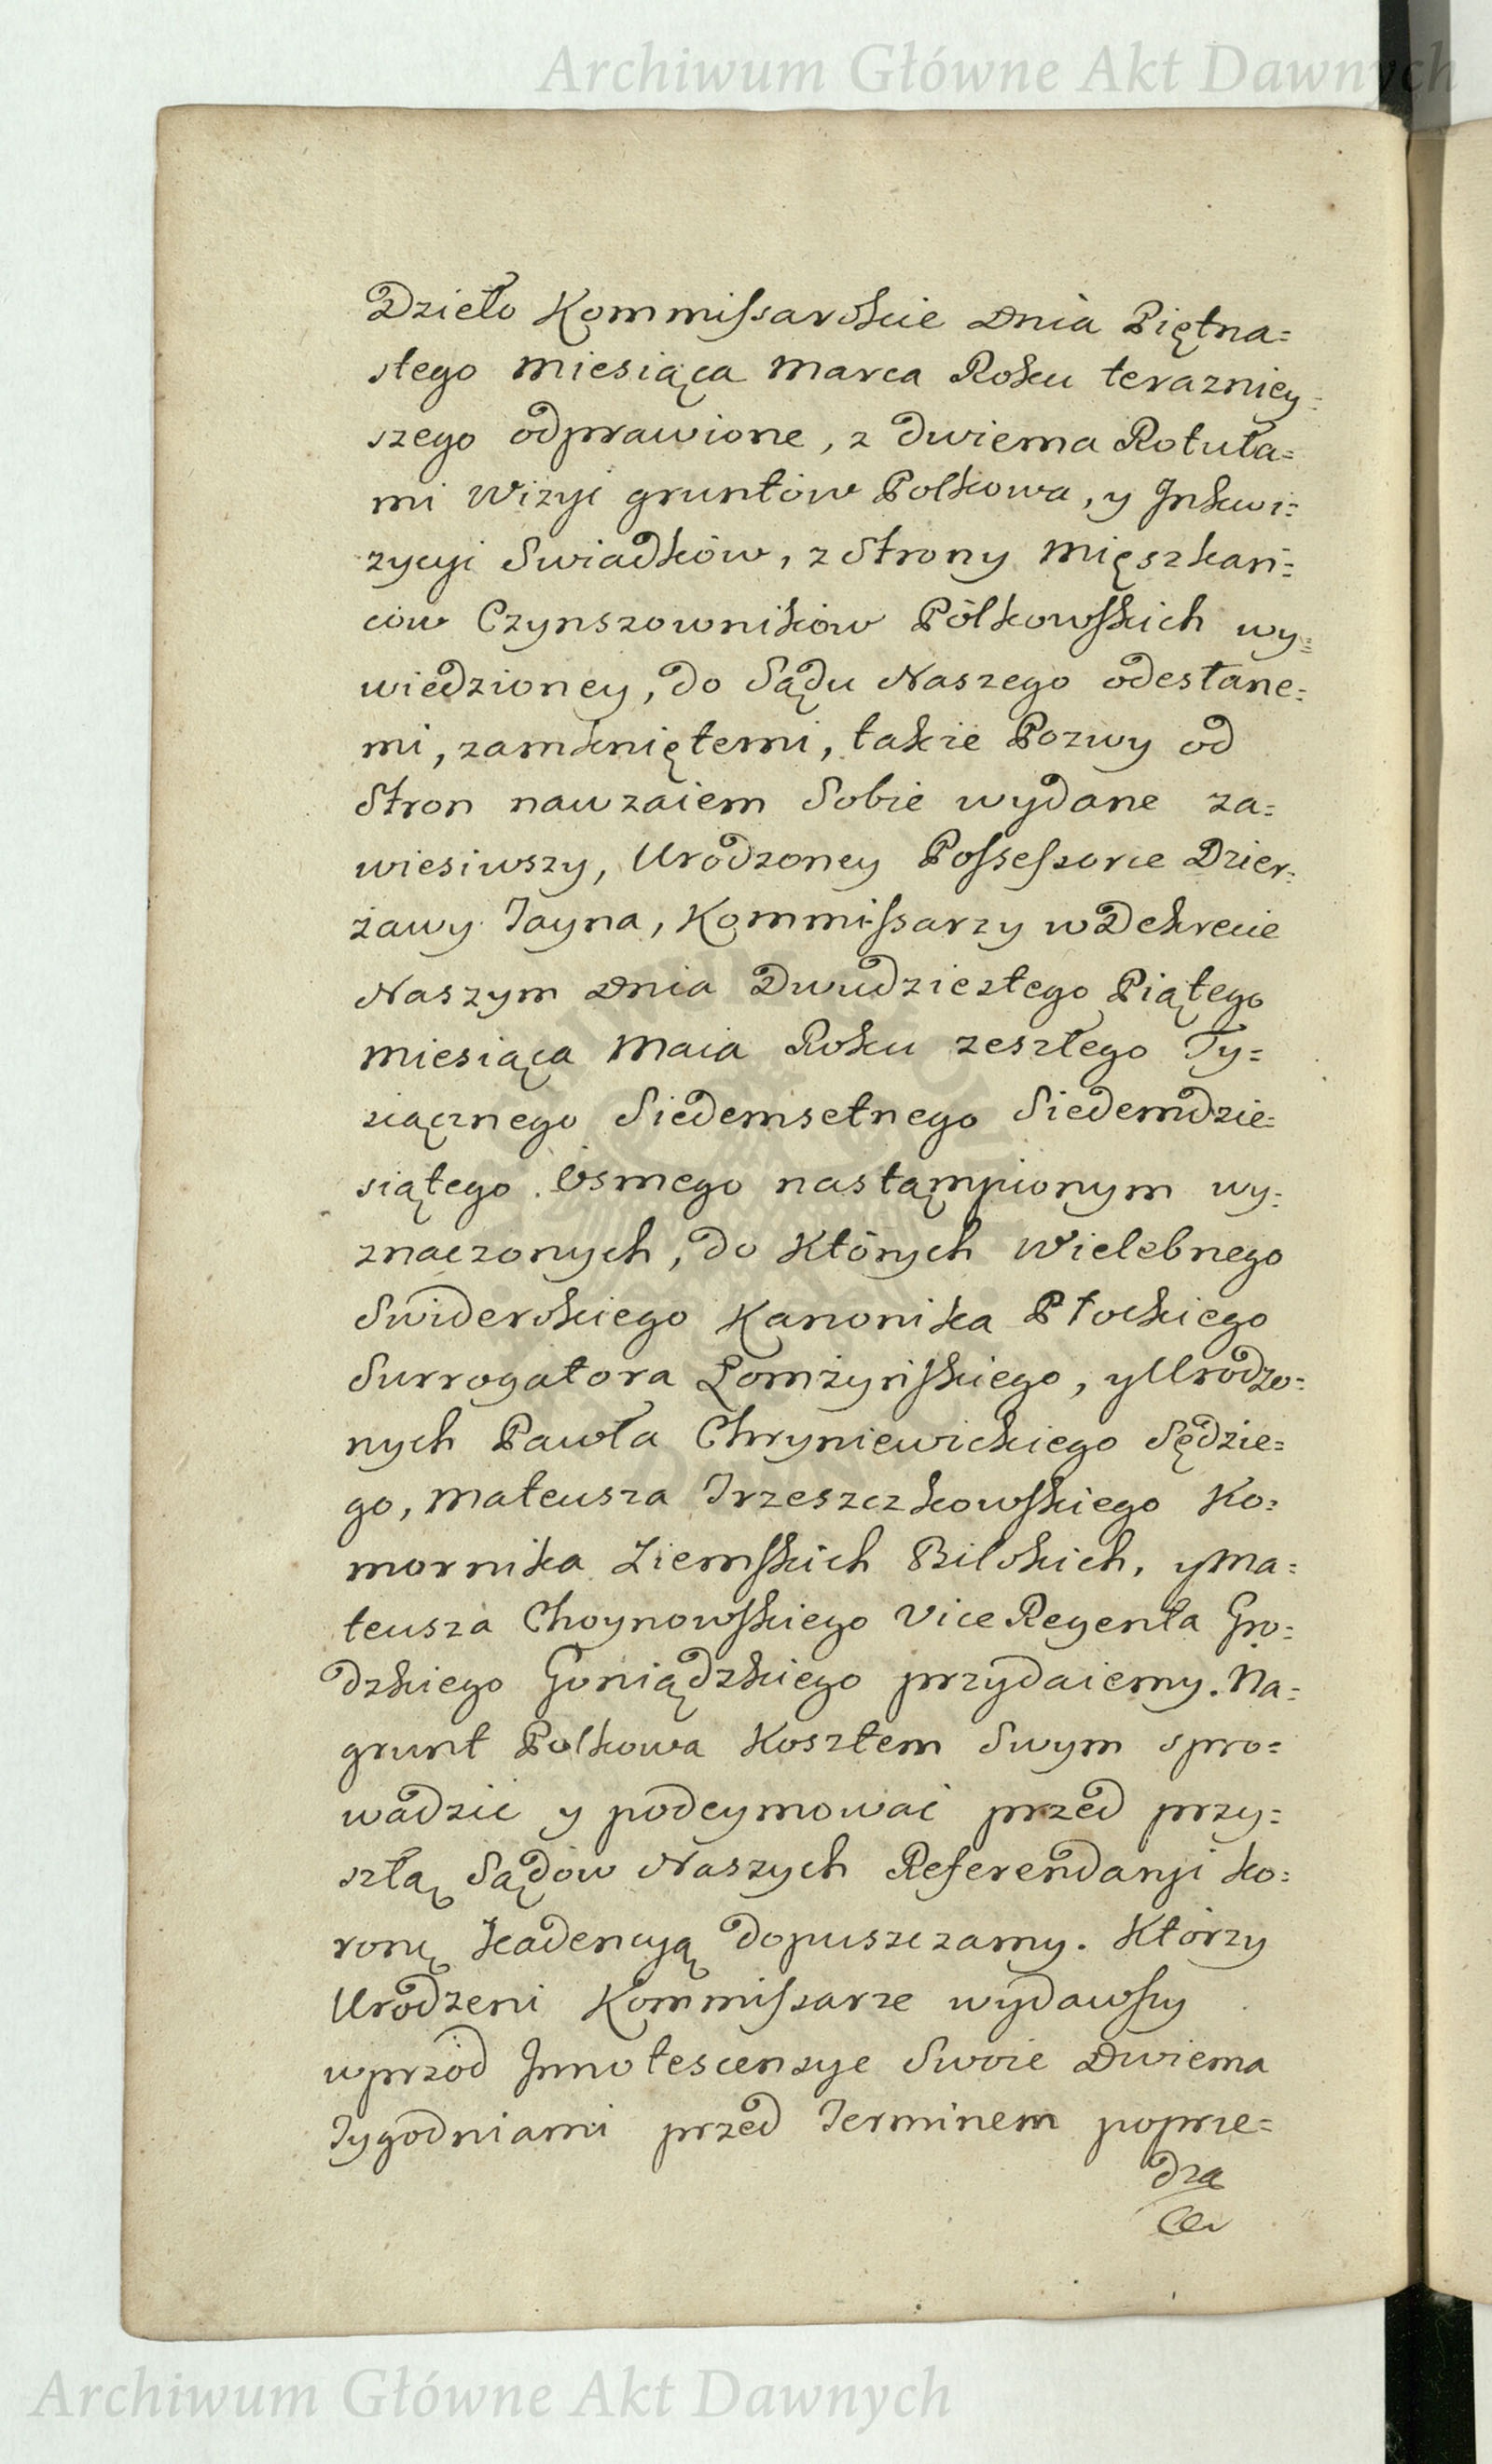 Archiwum Główne Akt Dawnych
Dzieło Kommissarskie Dnia Piętna=
stego Miesiąca Marca Roku terazniey=
szego odprawione, z dwiema Rotuła=
mi Wizyi gruntów Polkowa, y Inkwi=
zycyi Swiadków, z Strony Mięszkań=
ców Czynszowników Pólkowskich wy=
wiedzioney, do Sądu Naszego odesłane=
mi, zamkniętemi, takze Pozwy od
Stron nawzaiem Sobie wydane za=
wiesiwszy, Urodzoney Possessorce Dzier=
żawy Jayna, Kommissarzy w Dekrecie
Naszym Dnia Dwudziestego Piątego
Miesiąca Maia Roku zeszłego Ty=
siącznego Siedemsetnego Siedemdzie=
siątego Osmego nastąmpionym wy=
znaczonych, do Których Wielebnego
Swiderskiego Kanonika Płockiego
Surrogatora Łomżyńskiego, y Urodzo=
nych Pawła Chryniewickiego Sędzie=
go, Mateusza Trzeszczkowskiego Ko=
mornika Ziemskich Bilskich, y Ma=
teusza Choynowskiego Vice Regenta Gro=
dzkiego Goniądzkiego przydaiemy. Na=
grunt Polkowa Kosztem Swym spro=
wadzić y podeymować przed przy=
szłą Sądów Naszych Referendaryi ko=
ronę Kadencyą dopuszczamy. Którzy
Urodzeni Kommissarze wydawszy
wprzód Innotescensye Swoie Dwiema
Tygodniami przed Terminem poprze=
dza
Archiwum Główne Akt Dawnych